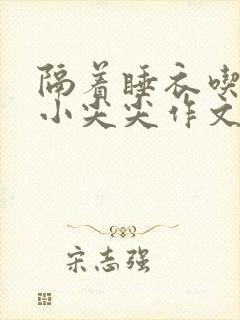 隔着睡衣喫
小尖尖作文
宋志强